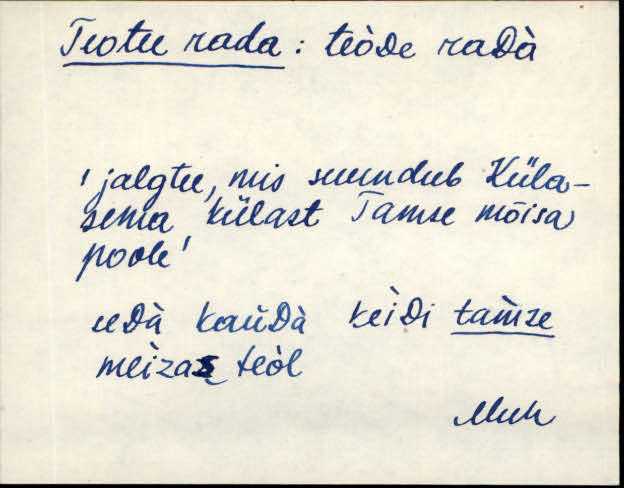 Teotee rada : teòᴅe raᴅà
'jalgtee, mis suundub Küla-
sema külast Tamse mõisa
poole'
seᴅà kaùᴅà keìᴅi tam̀se
meìzas teòl
Muh